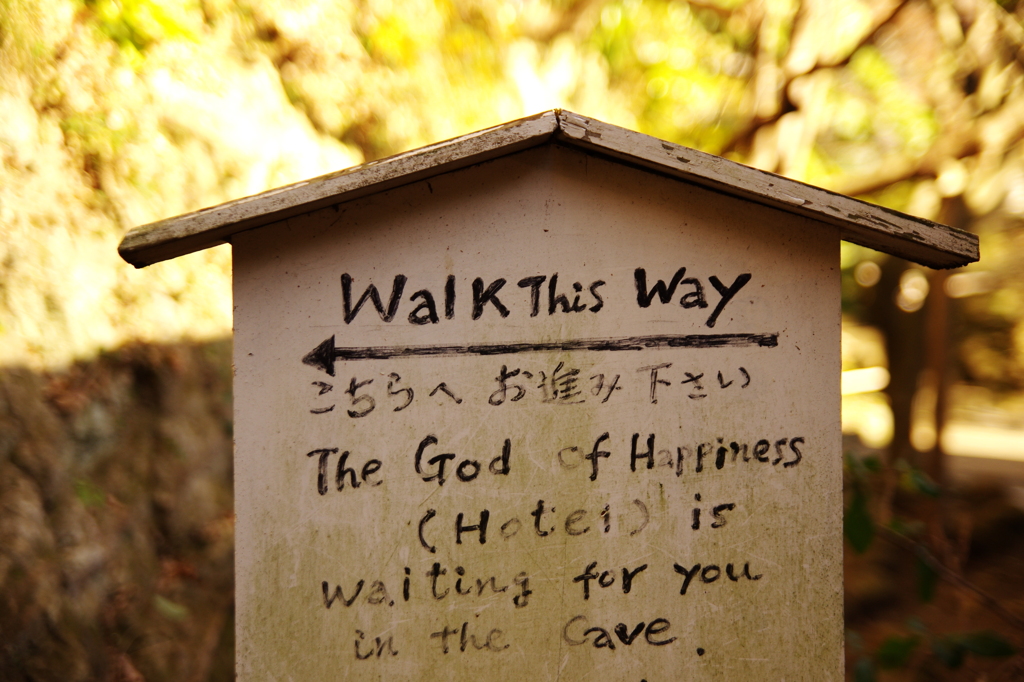 Walk This Way
こちらへ お進み下さい
The God of Happiness
(Hotei) is
waiting for you
in the Cave.